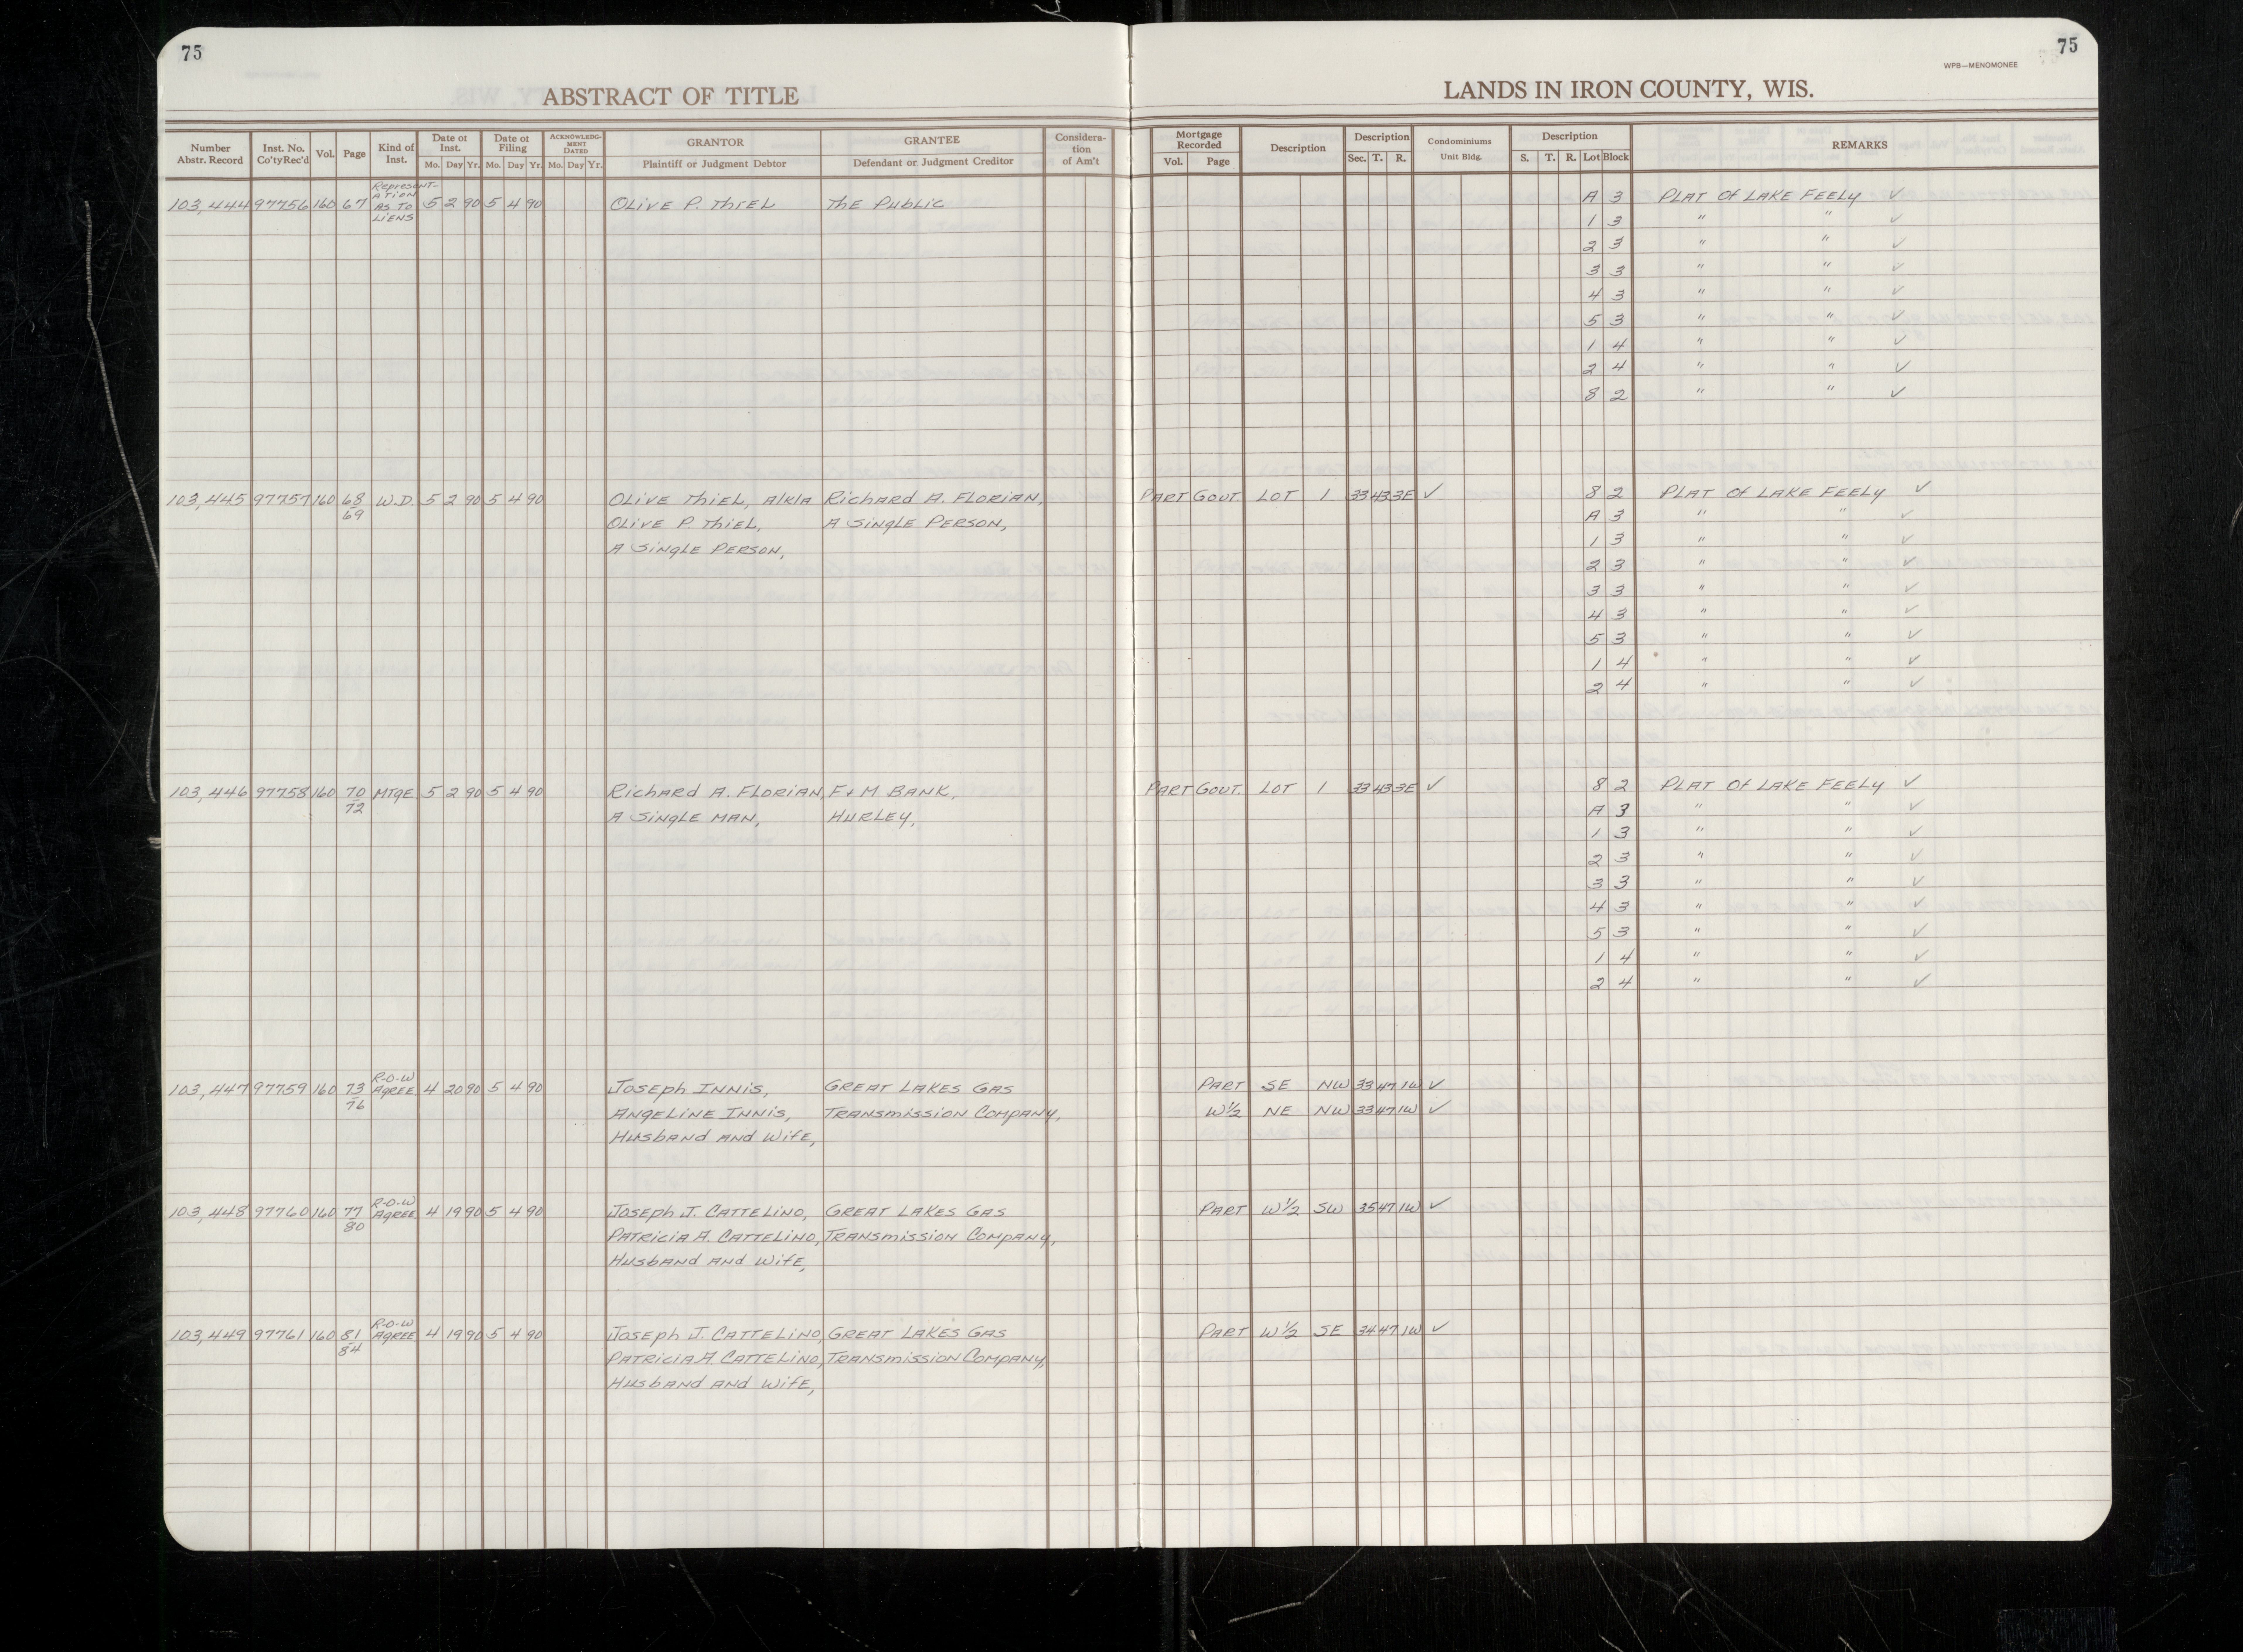 75
75
WPB—MENOMONEE
ABSTRACT OF TITLE
LANDS IN IRON COUNTY, WIS.
Number Abstr. Record | Inst. No. Co'ty Rec'd | Vol. | Page | Kind of Inst. | Date of Inst. Mo. Day Yr. | Date of Filing Mo. Day Yr. | ACKNOWLEDGMENT DATED Mo. Day Yr. | GRANTOR Plaintiff or Judgment Debtor | GRANTEE Defendant or Judgment Creditor | Consideration of Am't | Mortgage Recorded Vol. Page | Description | Description Sec. T. R. | Condominiums Unit Bldg. | Description S. T. R. Lot Block | REMARKS
103,444 97756 160 67 Representation As To Liens 5 2 90 5 4 90 Olive P. Thiel The Public A 3 Plat of Lake Feely ✓
1 3 " " ✓
2 3 " " ✓
3 3 " " ✓
4 3 " " ✓
5 3 " " ✓
1 4 " " ✓
2 4 " " ✓
8 2 " " ✓
103,445 97757 160 68/69 W.D. 5 2 90 5 4 90 Olive Thiel, A/K/A Richard A. Florian, Part Gov't. Lot 1 33 43 3E ✓ 8 2 Plat of Lake Feely ✓
Olive P. Thiel, A Single Person, A 3 " " ✓
A Single Person, 1 3 " " ✓
2 3 " " ✓
3 3 " " ✓
4 3 " " ✓
5 3 " " ✓
1 4 " " ✓
2 4 " " ✓
103,446 97758 160 70/72 Mtge 5 2 90 5 4 90 Richard A. Florian, F & M Bank, Part Gov't. Lot 1 33 43 3E ✓ 8 2 Plat of Lake Feely ✓
A Single Man, Hurley, A 3 " " ✓
1 3 " " ✓
2 3 " " ✓
3 3 " " ✓
4 3 " " ✓
5 3 " " ✓
1 4 " " ✓
2 4 " " ✓
103,447 97759 160 73/76 R-O-W Agree 4 20 90 5 4 90 Joseph Innis, Great Lakes Gas Part SE NW 33 47 1W ✓
Angeline Innis, Transmission Company, W½ NE NW 33 47 1W ✓
Husband and Wife,
103,448 97760 160 77/80 R-O-W Agree 4 19 90 5 4 90 Joseph J. Cattelino, Great Lakes Gas Part W½ SW 35 47 1W ✓
Patricia A. Cattelino, Transmission Company,
Husband and Wife,
103,449 97761 160 81/84 R-O-W Agree 4 19 90 5 4 90 Joseph J. Cattelino, Great Lakes Gas Part W½ SE 34 47 1W ✓
Patricia A Cattelino, Transmission Company,
Husband and Wife,